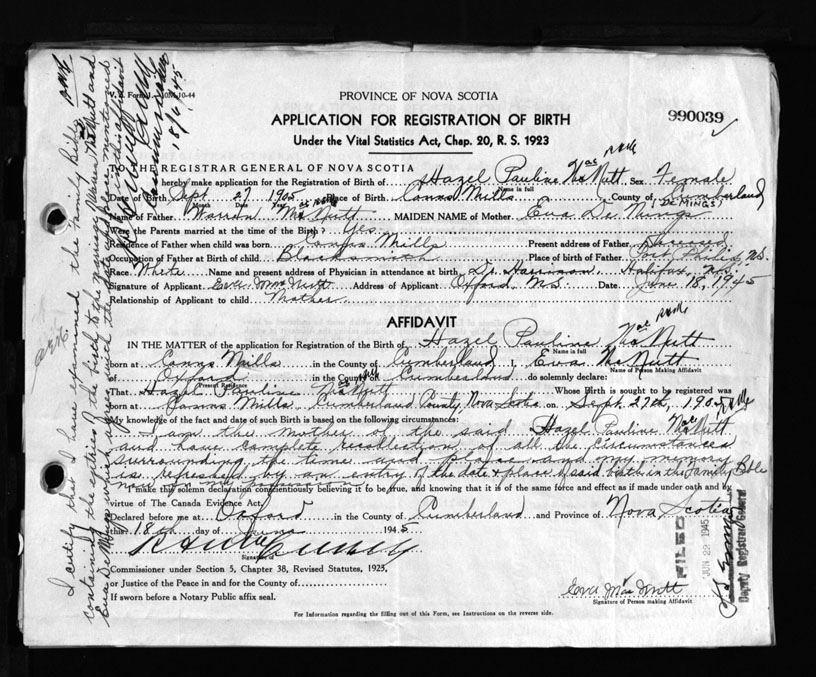 V. S. Form 10M-10-44
PROVINCE OF NOVA SCOTIA
APPLICATION FOR REGISTRATION OF BIRTH
990039
Under the Vital Statistics Act, Chap. 20, R. S. 1923
TO THE REGISTRAR GENERAL OF NOVA SCOTIA
I hereby make application for the Registration of Birth of Hazel Pauline MacNutt Sex Female
Name in full
Date of Birth Sept 27 1905 Place of Birth Conns Mills County of Cumberland
Month Day Year
DE MINGS
Name of Father Warren MacNutt MAIDEN NAME of Mother Eva De Mings
Were the Parents married at the time of Birth? Yes.
Residence of Father when child was born Conns Mills Present address of Father Deceased
Occupation of Father at Birth of child Blacksmith Place of birth of Father Port Philip, N.S.
Race White Name and present address of Physician in attendance at birth Dr. Harrison, Halifax, N.S.
Signature of Applicant Eva MacNutt Address of Applicant Oxford N.S. Date June 18, 1945
Relationship of Applicant to child Mother
AFFIDAVIT
IN THE MATTER of the application for Registration of the Birth of Hazel Pauline MacNutt
Name in full
born at Conns Mills in the County of Cumberland I, Eva MacNutt
Name of Person Making Affidavit
of Oxford in the County of Cumberland do solemnly declare:
Present Residence
That Hazel Pauline MacNutt Whose Birth is sought to be registered was
born at Conns Mills, Cumberland County, Nova Scotia on Sept. 27th, 1905
My knowledge of the fact and date of such Birth is based on the following circumstances:
I am the mother of the said Hazel Pauline MacNutt
and have complete recollection of all the circumstances
surrounding the time and place and my memory
is refreshed by an entry of the date & place of said birth in the family Bible
in my possession
I make this solemn declaration conscientiously believing it to be true, and knowing that it is of the same force and effect as if made under oath and by
virtue of The Canada Evidence Act.
Declared before me at Oxford in the County of Cumberland and Province of Nova Scotia
this 18th day of June 1945
Signature of
Commissioner under Section 5, Chapter 38, Revised Statutes, 1923,
or Justice of the Peace in and for the County of
If sworn before a Notary Public affix seal.
Eva MacNutt
Signature of Person making Affidavit
For Information regarding the filling out of this Form, see Instructions on the reverse side.
FILED
JUN 22 1945
Deputy Registrar General
I certify that I have examined the family Bible
containing the entries of the birth & the marriage, Warren MacNutt and
Eva De Mings which agrees with the date & place mentioned
in this affidavit
Commissioner
18/6/45